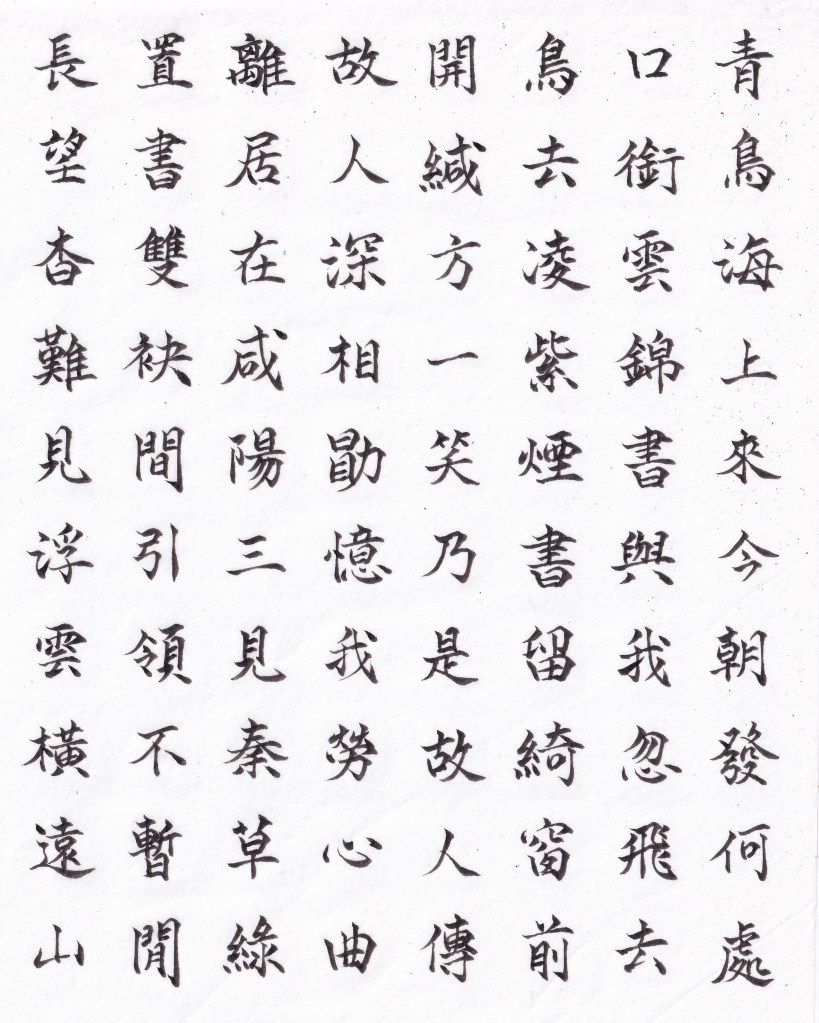 青鳥海上來今朝發何處
口銜雲錦書與我忽飛去
鳥去凌紫煙書留綺窗前
開緘方一笑乃是故人傳
故人深相勖憶我勞心曲
離居在咸陽三見秦草綠
置書雙袂間引領不暫閒
長望杳難見浮雲橫遠山